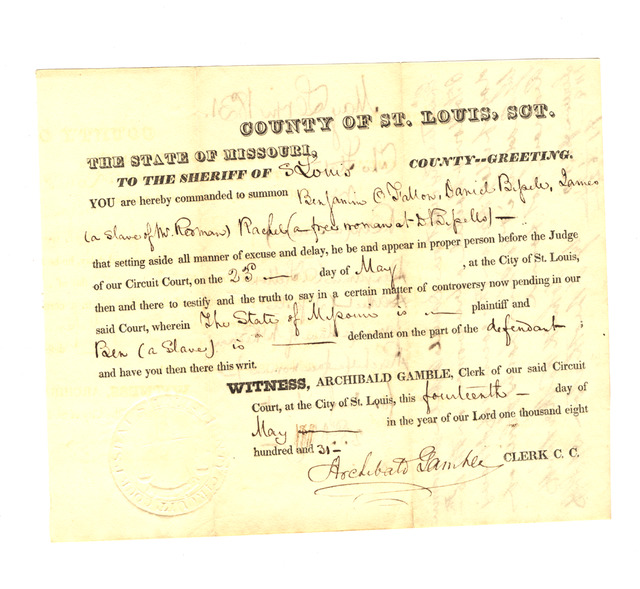 COUNTY OF ST. LOUIS, SCT.
THE STATE OF MISSOURI,
TO THE SHERIFF OF St Louis COUNTY--GREETING.
YOU are hereby commanded to summon Benjamin O Fallon, Daniel Bissell, James
(a slave of Mr. Rodman) Rachel (a free woman at D Bissells) —
that setting aside all manner of excuse and delay, he be and appear in proper person before the Judge
of our Circuit Court, on the 23d — day of May , at the City of St. Louis,
then and there to testify and the truth to say in a certain matter of controversy now pending in our
said Court, wherein The State of Missouri is — plaintiff and
Ben (a Slave) is — defendant on the part of the defendant ;
and have you then there this writ.
WITNESS, ARCHIBALD GAMBLE, Clerk of our said Circuit
Court, at the City of St. Louis, this fourteenth — day of
May — in the year of our Lord one thousand eight
hundred and 31—
Archibald Gamble CLERK C. C.